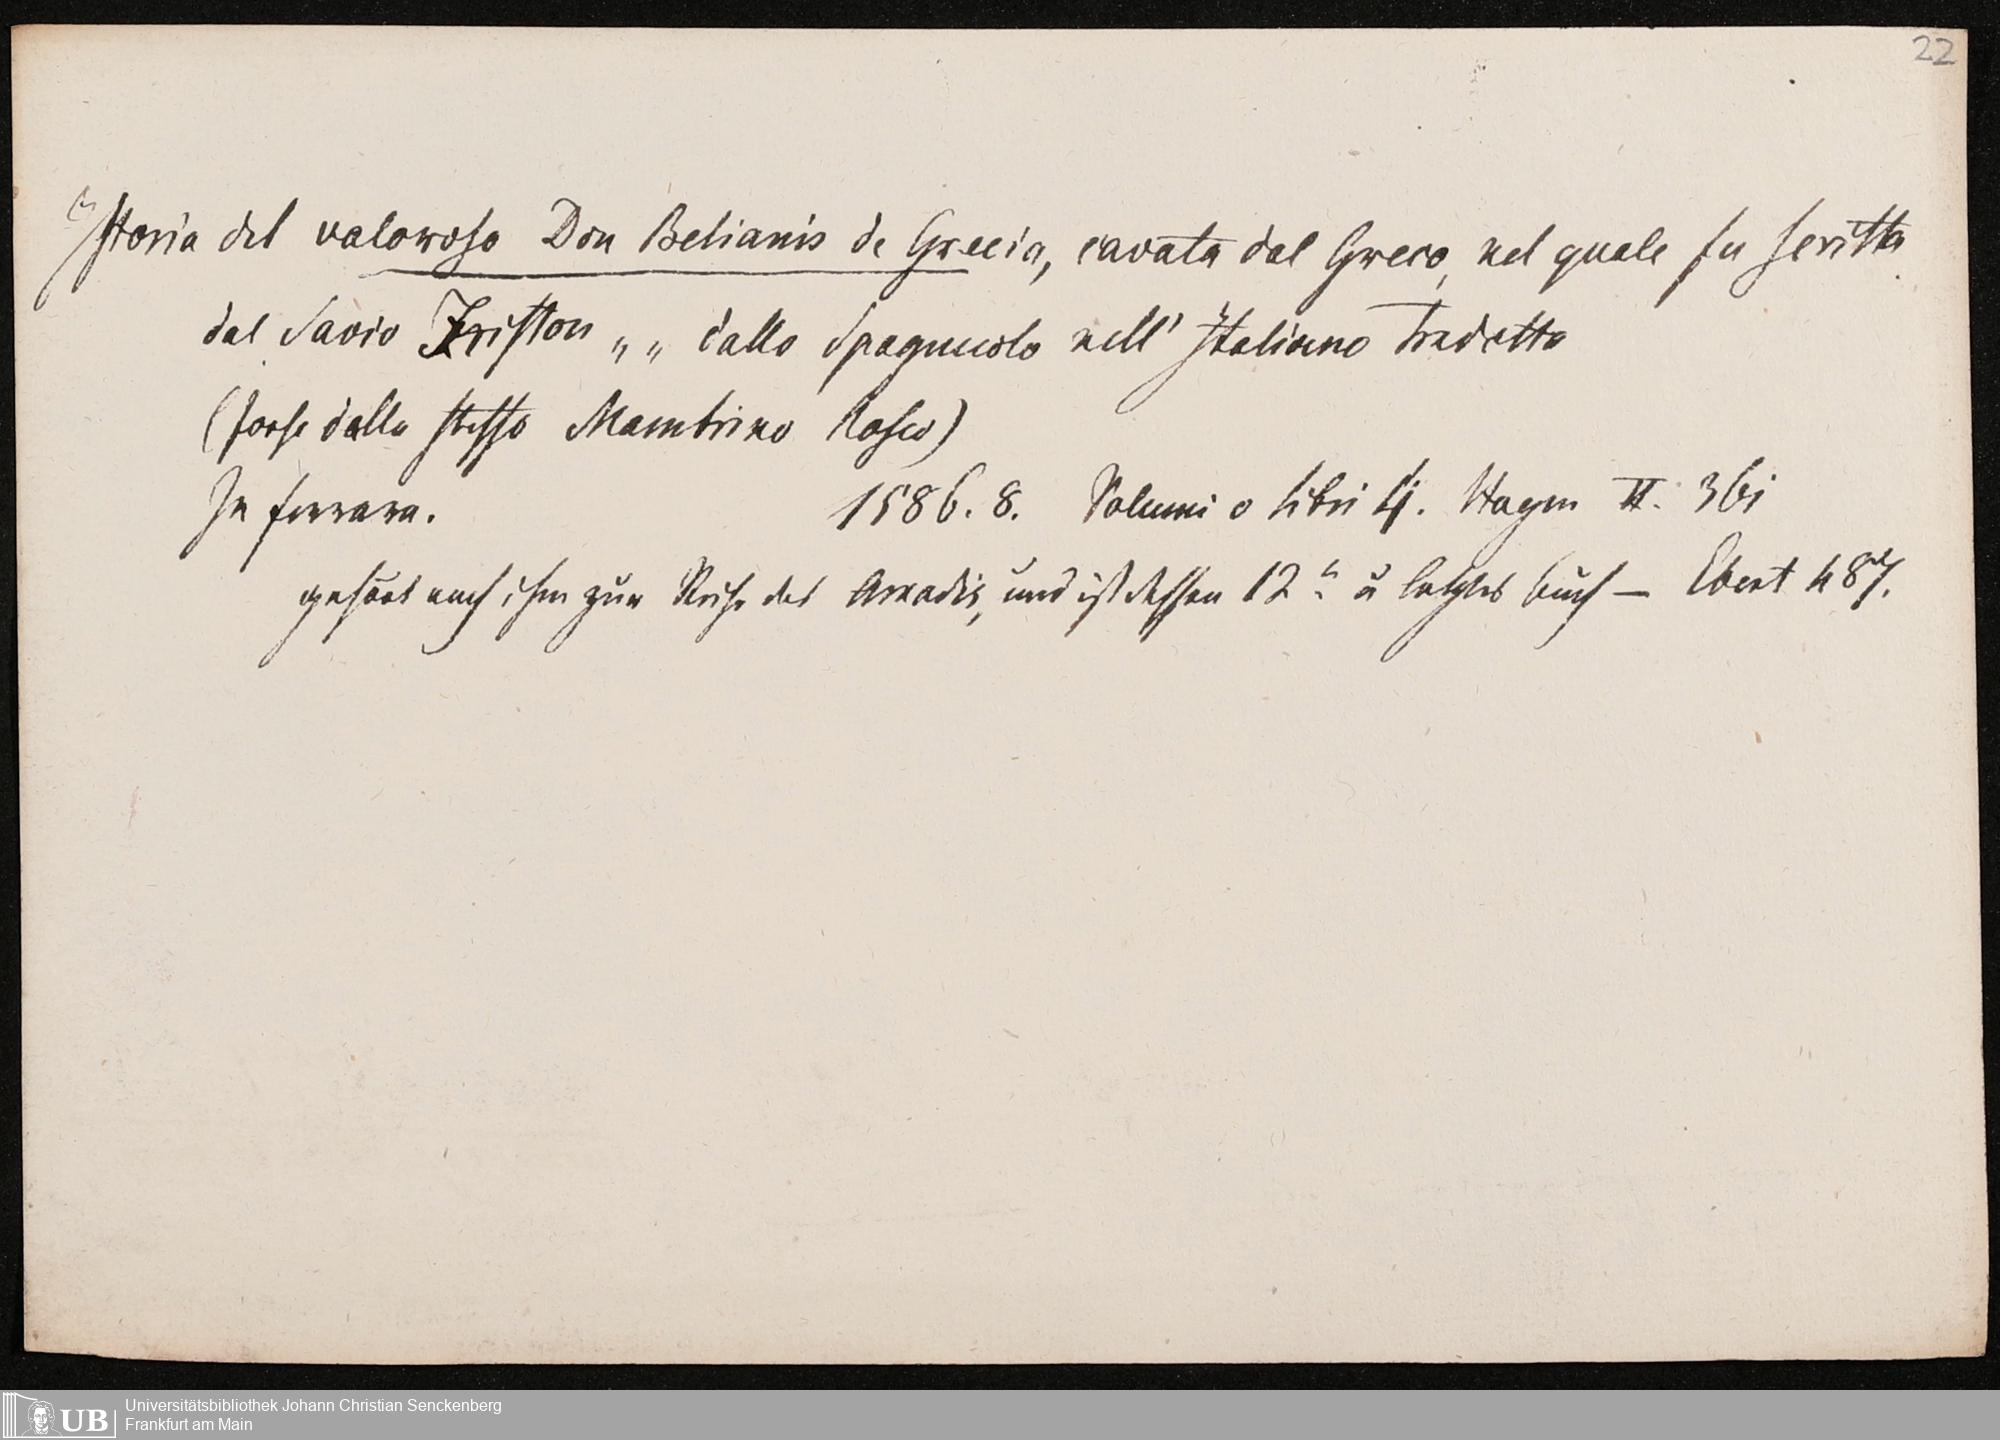 22
Istoria del valoroso Don Belianis de Grecia, cavata dal Greco, nel quale fu scritta
dal Savio Friston „ „ dallo Spagnuolo nell' Italiano Tradotta
(forse dallo stesso Mambrino Roseo)
In ferrara. 1586. 8. Volumi o libri 4. Hagen II. 361
gehört nach ihm zur Reihe des Amadis, und ist dessen 12n u letztes buch — Ebert 487.
Universitätsbibliothek Johann Christian Senckenberg
Frankfurt am Main
UB